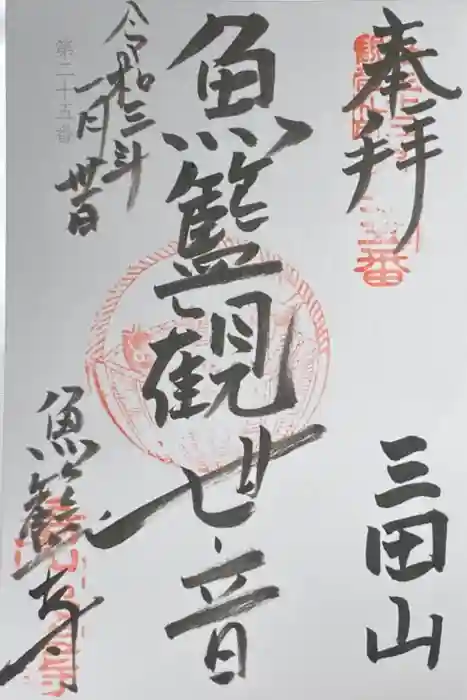 奉拝
三田山
魚籃観世音
令和三年
一月廿日
第二十五番
魚籃寺